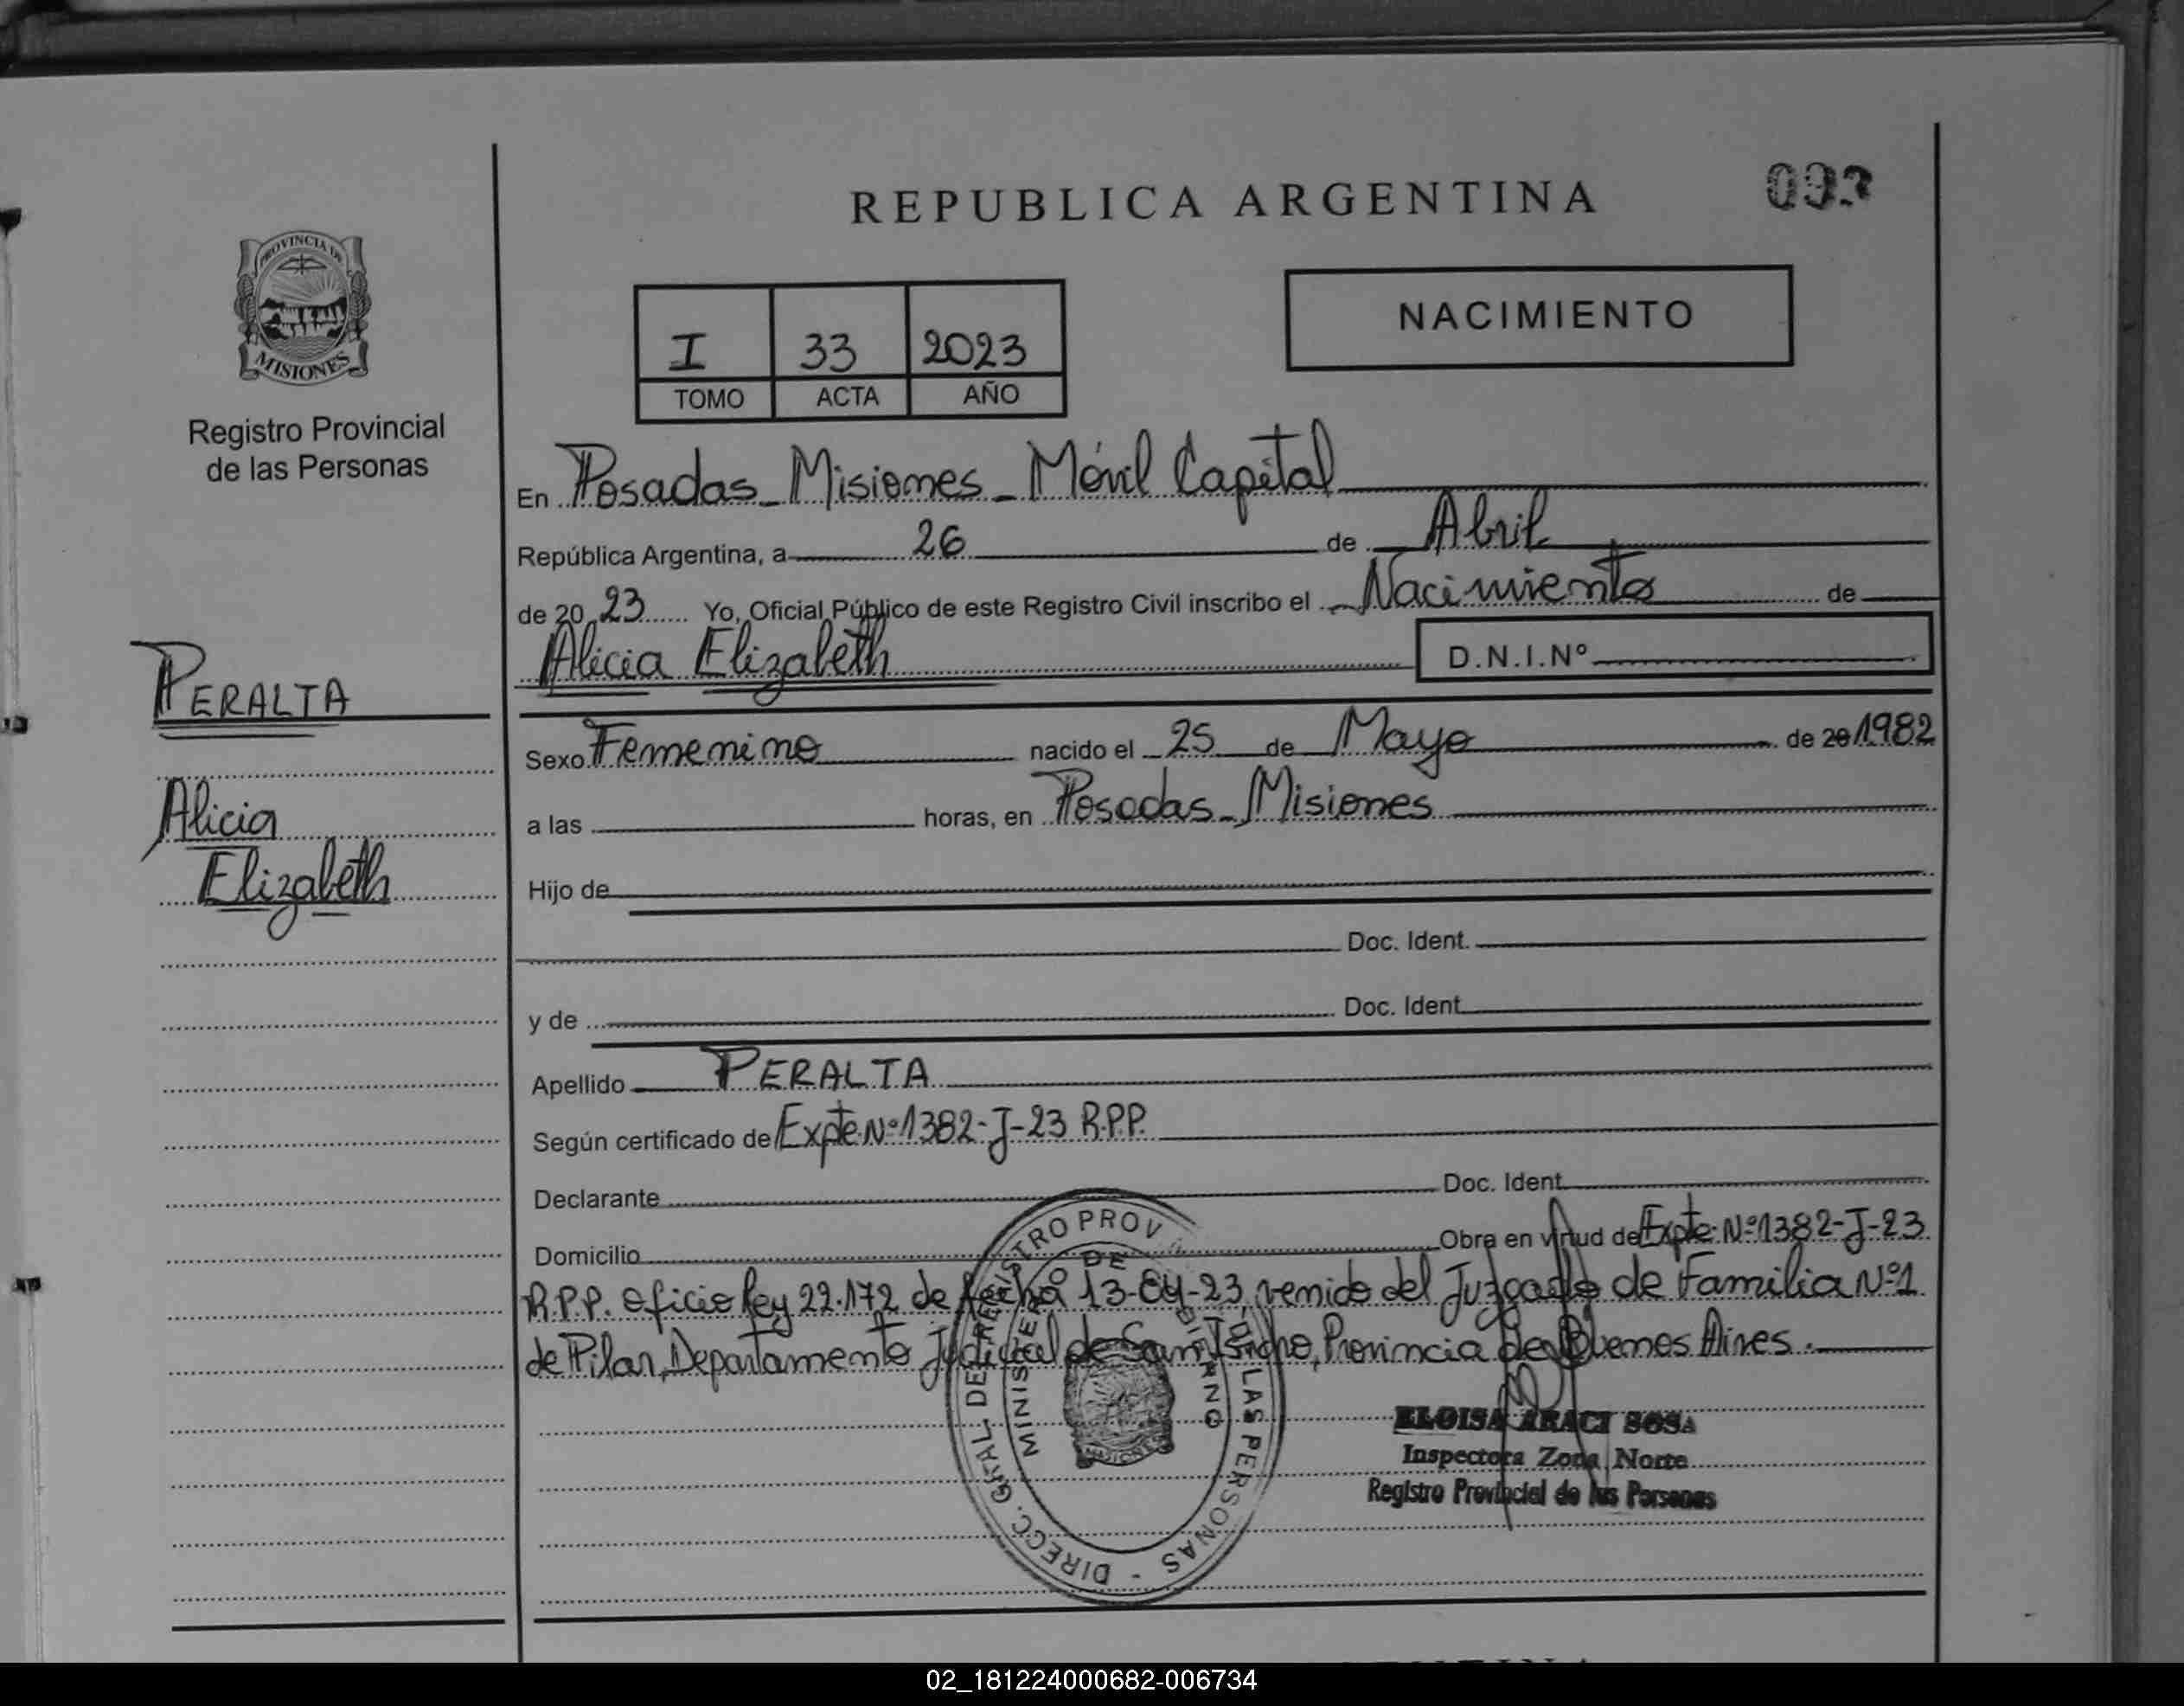 REPUBLICA ARGENTINA
PROVINCIA DE
MISIONES
Registro Provincial
de las Personas
NACIMIENTO
I 33 2023
TOMO ACTA AÑO
En Posadas - Misiones - Móvil Capital
República Argentina, a 26 de Abril
de 20 23 Yo, Oficial Público de este Registro Civil inscribo el Nacimiento de
Alicia Elizabeth D.N.I.Nº
PERALTA
Alicia
Elizabeth
Sexo Femenino nacido el 25 de Mayo de 20 1982
a las horas, en Posadas - Misiones
Hijo de
Doc. Ident.
y de Doc. Ident.
Apellido PERALTA
Según certificado de Expte Nº 1382-J-23 R.P.P.
Declarante Doc. Ident.
Domicilio Obra en virtud de Expte. Nº 1382-J-23
R.P.P. Oficio Ley 22.172 de fecha 13-04-23, venido del Juzgado de Familia Nº1
de Pilar, Departamento Judicial de San Isidro, Provincia de Buenos Aires.
DIRECC. GRAL. DEL REGISTRO PROV DE LAS PERSONAS -
MINISTERIO DE GOBIERNO
MISIONES
ELOISA ARACI SOSA
Inspectora Zona Norte
Registro Provincial de las Personas
02_181224000682-006734